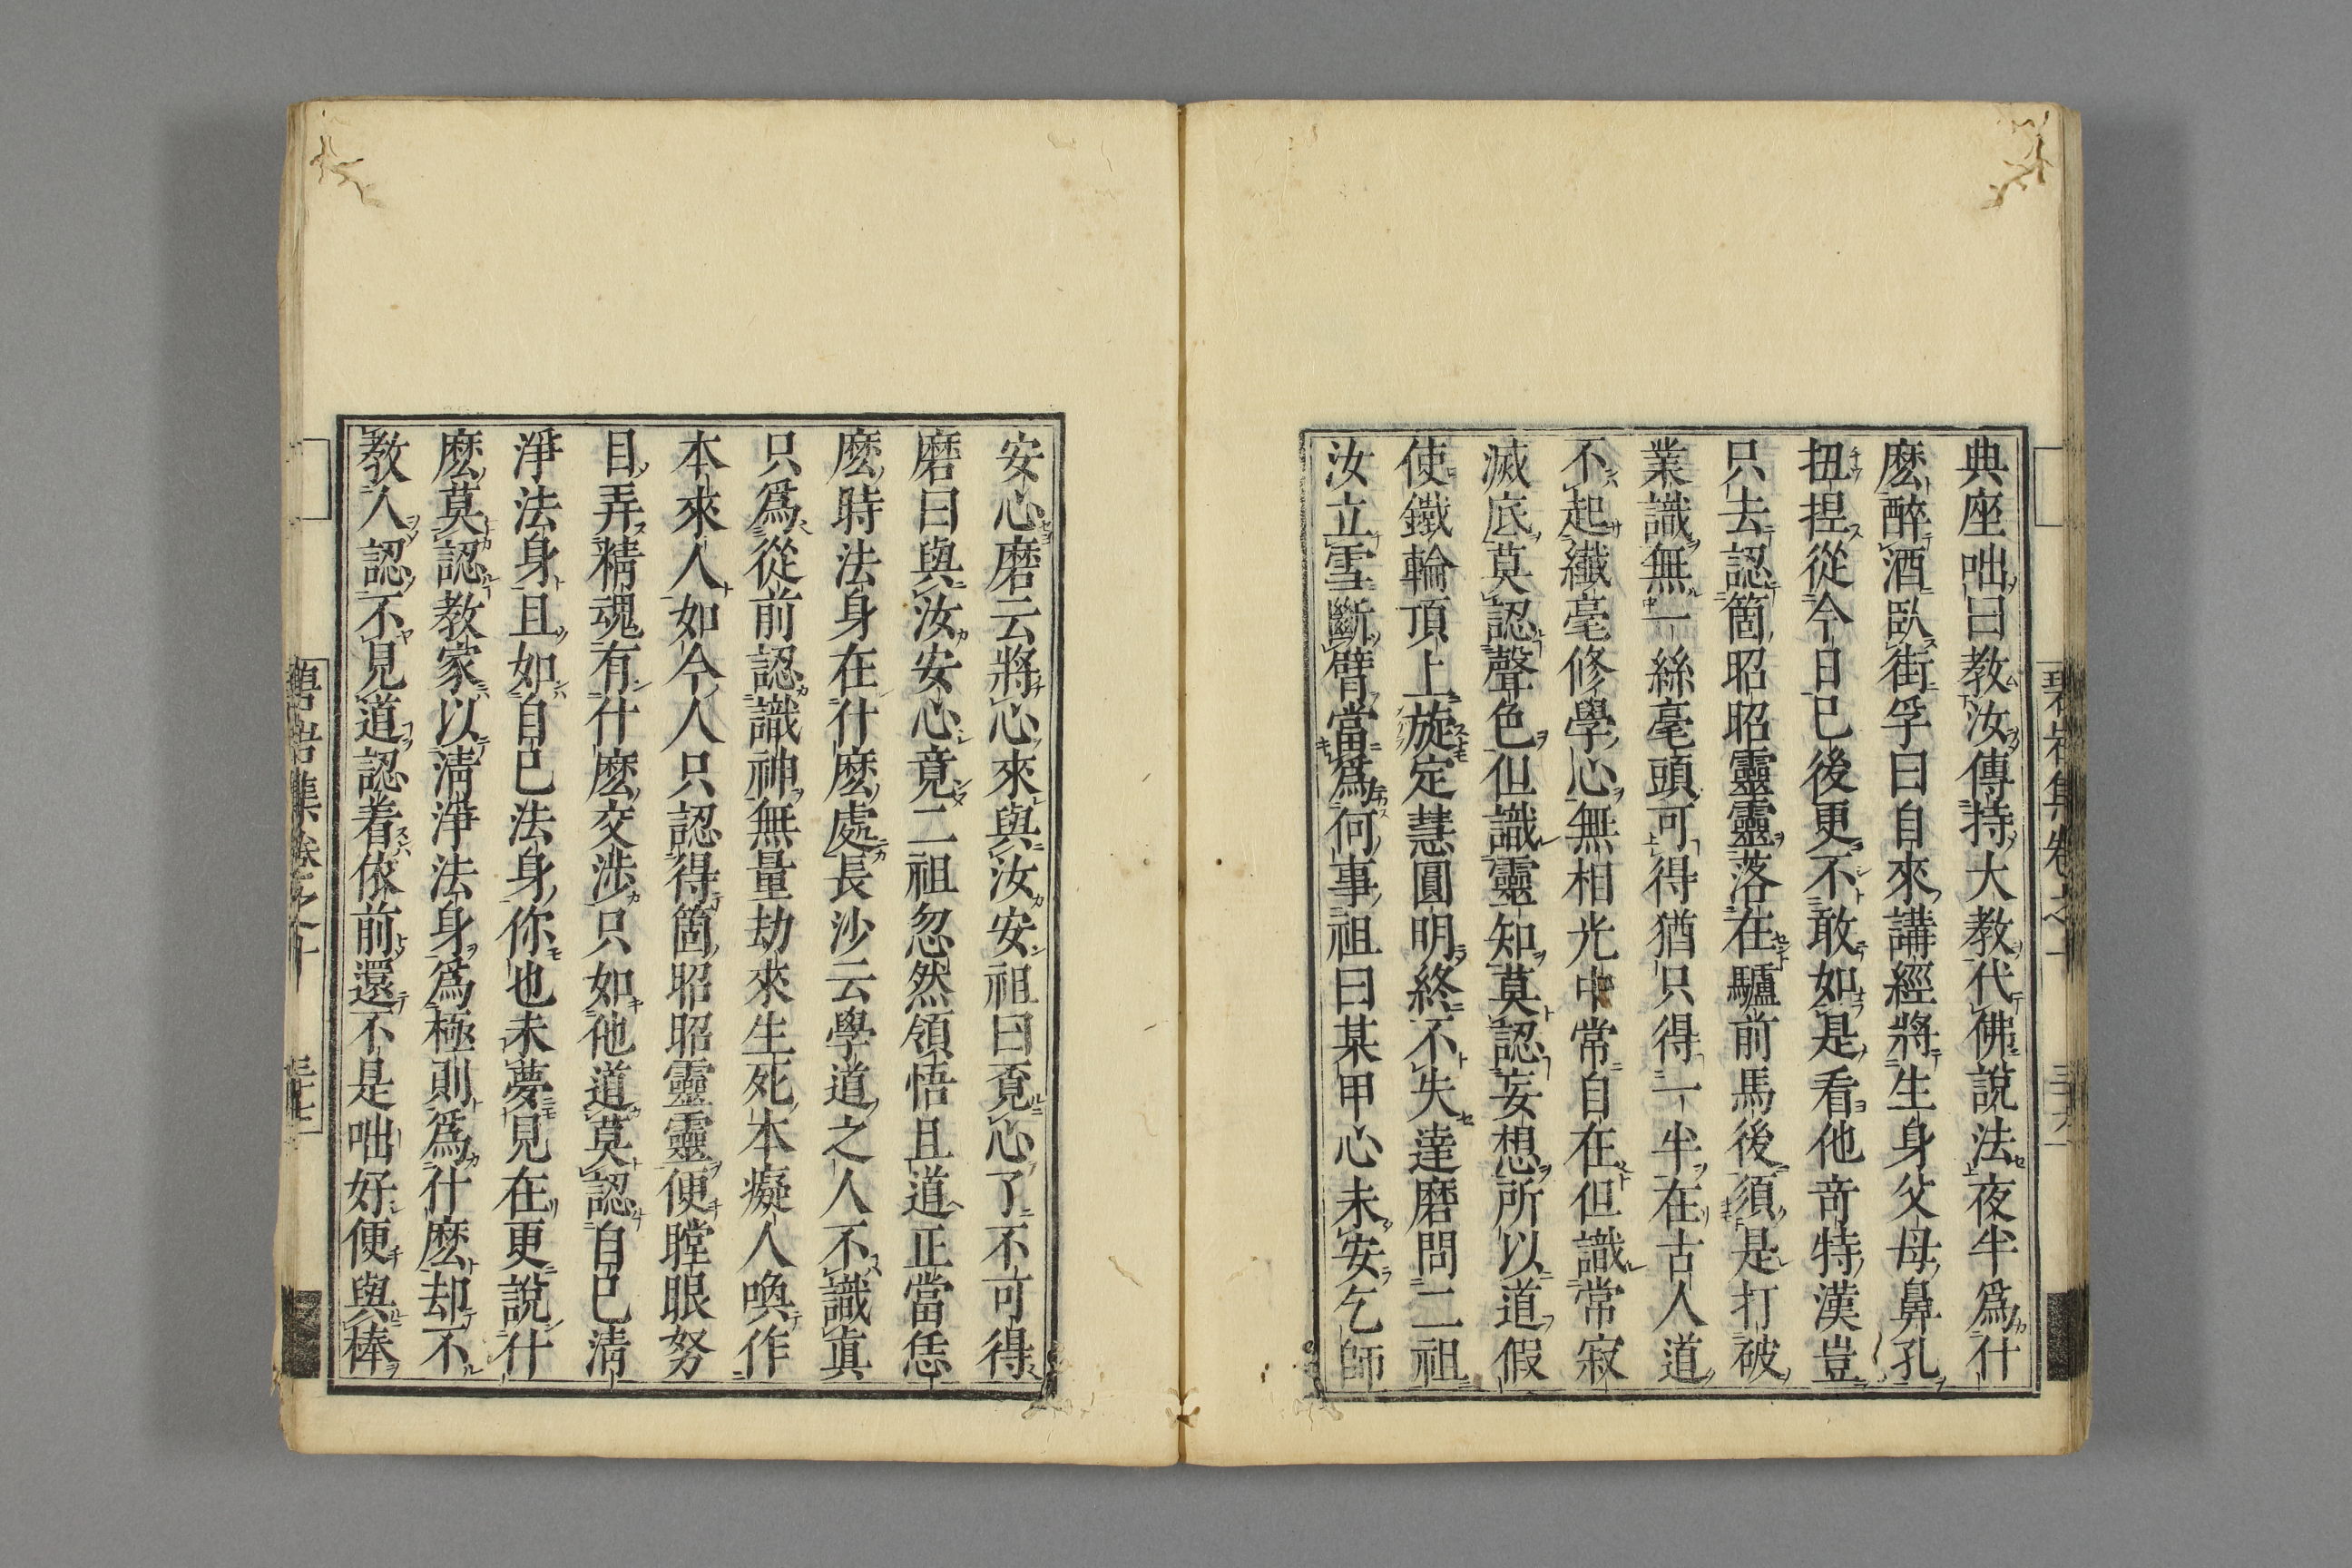 典座咄曰教汝傳持大教代佛說法夜半爲什
麽醉酒臥街孚曰自來講經將生身父母鼻孔
扭捏從今日已後更不敢如是看他竒特漢豈
只去認箇昭昭靈靈落在驢前馬後須是打破
業識無一絲毫頭可得猶只得一半在古人道
不起纖毫修學心無相光中常自在但識常寂
滅底莫認聲色但識靈知莫認妄想所以道假
使鐵輪頂上旋定慧圓明終不失達磨問二祖
汝立雪斷臂當爲何事祖曰某甲心未安乞師
安心磨云將心來與汝安祖曰覔心了不可得
磨曰與汝安心竟二祖忽然領悟且道正當恁
麽時法身在什麽處長沙云學道之人不識眞
只爲從前認識神無量劫來生死本癡人喚作
本來人如今人只認得箇昭昭靈靈便瞠眼努
目弄精魂有什麽交涉只如他道莫認自己清
淨法身且如自己法身你也未夢見在更說什
麽莫認教家以清淨法身爲極則爲什麽却不
教人認不見道認着依前還不是咄好便與棒